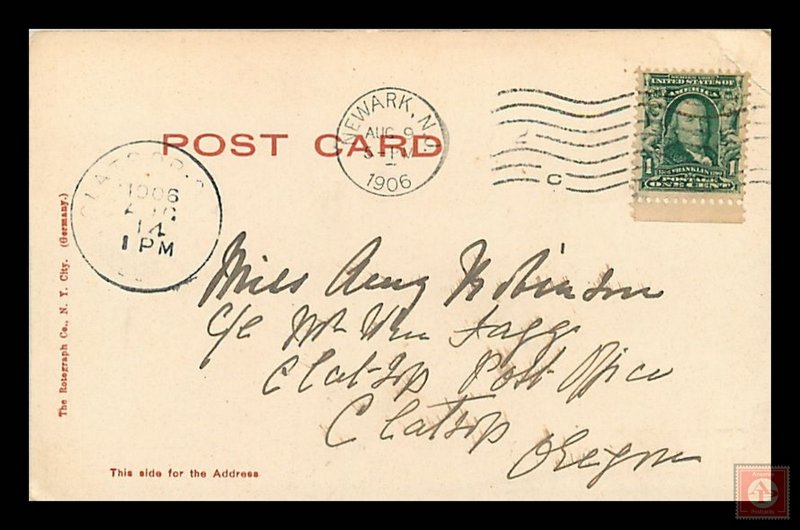 POST CARD
NEWARK, N.J.
AUG 9
5-PM
1906
C
SERIES 1902
UNITED STATES OF
AMERICA
1 1
FRANKLIN
POSTAGE
ONE CENT
CLATSOP
1906
AUG
14
1 PM
Miss Amy Robinson
c/o Mr Wm Fagg
Clatsop Post Office
Clatsop
Oregon
The Rotograph Co., N. Y. City. (Germany.)
This side for the Address